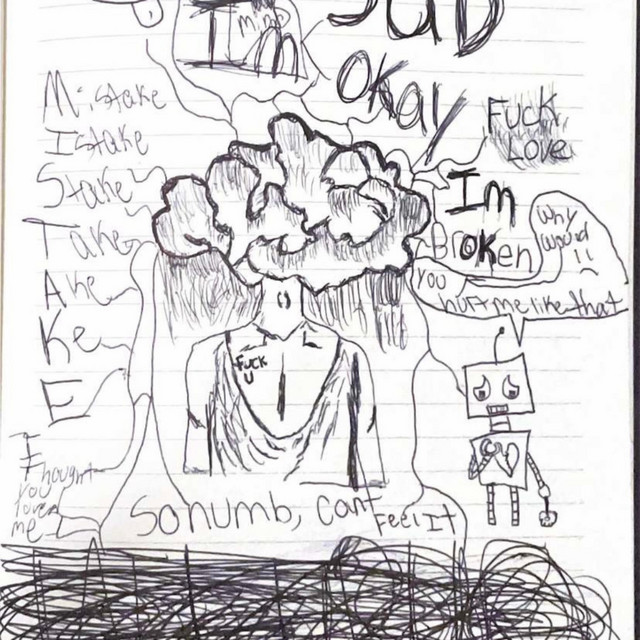 SaD
Im
Okay
Fuck
Love
Mistake
Istake
Stake
Take
Ake
Ke
E
Im
Broken
Why
would
you
hurt me like that
Fuck
U
I
Thought
you
loved
me
So numb, cant Feel It